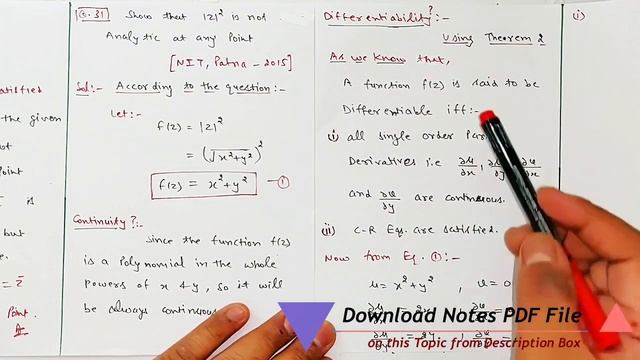 Q.31 Show that |z|² is not
Analytic at any Point
[NIT, Patna - 2015]
Sol:- According to the question:-
Let:-
f(z) = |z|²
= (√x²+y²)²
f(z) = x²+y² — ①
Continuity?:-
Since the function f(z)
is a Polynomial in the whole
powers of x & y, so it will
be always continuous
Differentiability?:-
Using Theorem 2
As we know that,
A function f(z) is said to be
Differentiable iff:-
(i) all single order
Derivatives i.e ∂u/∂x, ∂x
and ∂v/∂y are continuous.
(ii) C-R Eqs. are satisfied.
Now from Eq. ①:-
u = x²+y², v = 0
(i)
atisfied
Point
is
but
= z̄
Point.
A
Download Notes PDF File
on this Topic from Description Box